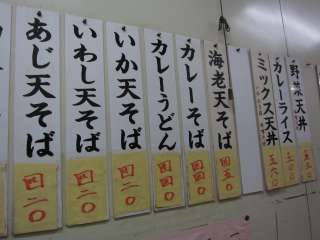 あじ天そば 四二〇
いわし天そば 四二〇
いか天そば 四二〇
カレーうどん 四四〇
カレーそば 四四〇
海老天そば 四五〇
ミックス天丼 五六〇
カレーライス
野菜天丼